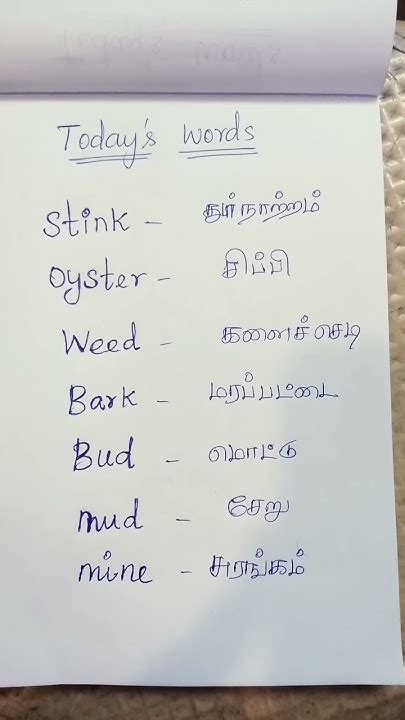 Today's Words
Stink - துர்நாற்றம்
Oyster - சிப்பி
Weed - களைச்செடி
Bark - மரப்பட்டை
Bud - மொட்டு
mud - சேறு
mine - சுரங்கம்